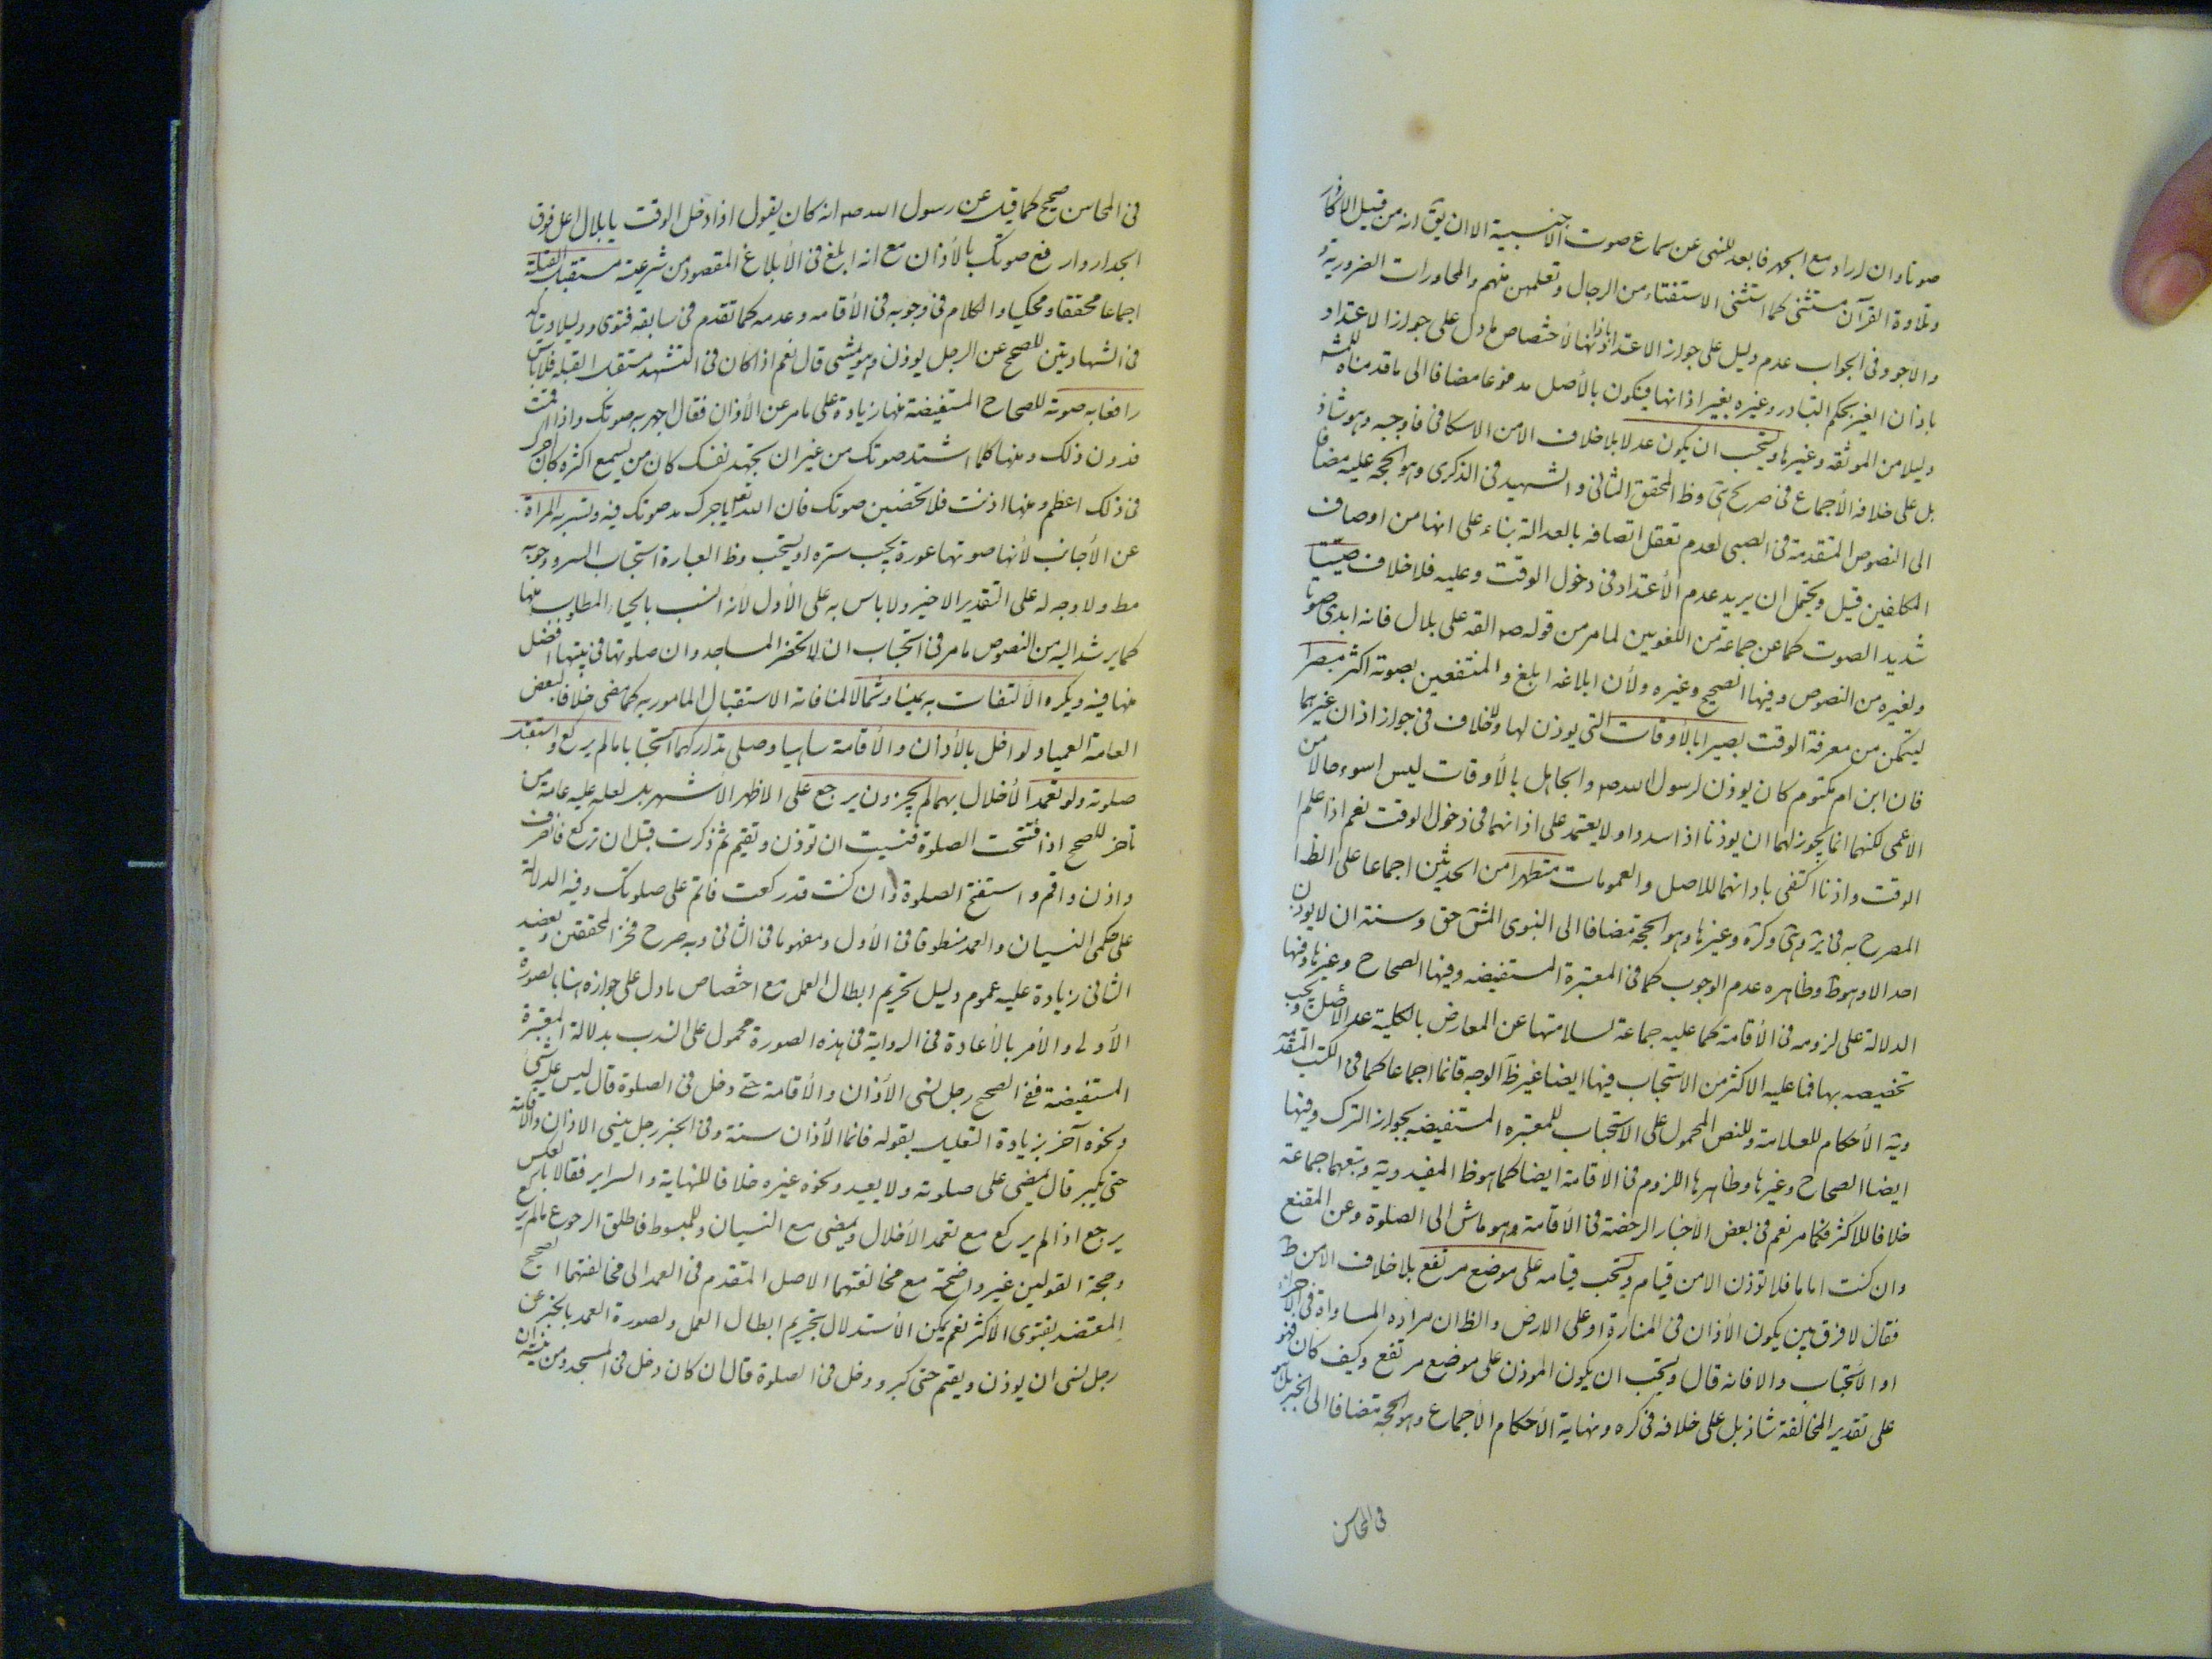 صوتا وان اراد مع الجهر فابعد للنهي عن سماع صوت الاجنبية الا ان يق انه من قبيل الاذكار
وتلاوة القرآن مستثنى كما استثنى الاستفتاء من الرجال وتعلمهن منهم والمحاورات الضرورية
والاجود في الجواب عدم دليل على جواز الاعتداد باذانها لاختصاص ما دل على جواز الاعتداد
باذان الغير بحكم التبادر وغيره بغير اذانها فيكون بالأصل مدفوعا مضافا الى ما قدمناه
دليلا من الموثقة وغيرها ويستحب ان يكون عدلا بلا خلاف الا من الاسكافي فاوجبه وهو شاذ
بل على خلافه الأجماع في صريح هى وظ المحقق الثاني والشهيد في الذكرى وهو الحجة عليه مضافا
الى النصوص المتقدمة في الصبي لعدم تعقل اتصافه بالعدالة بناء على انها من اوصاف
المكلفين قيل ويحتمل ان يريد عدم الأعتداد في دخول الوقت وعليه فلا خلاف صيتا
شديد الصوت كما عن جماعة من اللغويين لما مر من قوله ص القه على بلال فانه اندى صوتا
ولغيره من النصوص وفيها الصحيح وغيره ولأن ابلاغه ابلغ والمنتفعين بصوته اكثر مبصرا
ليتمكن من معرفة الوقت بصيرا بالأوقات التي يوذن لها ولا خلاف في جواز اذان غيرهما
فان ابن ام مكتوم كان يوذن لرسول الله ص والجاهل بالأوقات ليس اسوء حالا من
الاعمى لكنهما انما يجوز لهما ان يوذنا اذا سددا ولا يعتمد على اذانهما في دخول الوقت نعم اذا علم
الوقت واذنا اكتفي باذانهما للاصل والعمومات متطهرا من الحدثين اجماعا على الظ
المصرح به في وكره وغيرها وهو الحجة مضافا الى النبوي حق وسنة ان لا يوذن
احد الا وهو ط وظاهره عدم الوجوب كما في المعتبرة المستفيضة وفيها الصحاح وغيرها وفيها
الدلالة على لزومه في الأقامة كما عليه جماعة لسلامتها عن المعارض بالكلية عدا الأصل ويجب
تخصيصه بها فما عليه الاكثر من الاستحباب فيها ايضا غير ظ الوجه قائما اجماعا كما في الكتب المتقدمة
ونهاية الأحكام للعلامة وللنص المحمول على الاستحباب للمعتبرة المستفيضة بجواز الترك وفيها
ايضا الصحاح وغيرها وظاهرها اللزوم في الاقامة ايضا كما هو ظ المفيد وتبعهما جماعة
خلافا للأكثر فكما مر نعم في بعض الأخبار الرخصة في الأقامة وهو ماش الى الصلوة وعن المقنع
وان كنت اماما فلا توذن الا من قيام ويستحب قيامه على موضع مرتفع بلا خلاف الا من ط
فقال لا فرق بين يكون الأذان في المنارة او على الارض والظ ان مراده المساواة في الأجزاء
او الاستحباب والا فانه قال ويستحب ان يكون الموذن على موضع مرتفع وكيف كان فهو
على تقدير المخالفة شاذ بل على خلافه في كره ونهاية الأحكام الأجماع وهو الحجة مضافا الى الخبر
في المحاسن
في المحاسن صحيح كما قيل عن رسول الله ص انه كان يقول اذا دخل الوقت يا بلال اعل فوق
الجدار وارفع صوتك بالأذان مع انه ابلغ في الأبلاغ المقصود من شرعيته مستقبل القبلة
اجماعا محققا ومحكيا والكلام في وجوبه في الأقامة وعدمه كما تقدم في سابقه فتوى ودليلا ويتأكد
في الشهادتين للصحيح عن الرجل يوذن وهو يمشي قال نعم اذا كان في التشهد مستقبل القبلة فلا بأس
رافعا به صوته للصحاح المستفيضة منها زيادة على ما مر عن الأذان فقال اجهر به صوتك واذا اقمت
فدون ذلك ومنها كلما اشتد صوتك من غير ان تجهد نفسك كان من يسمع اكثر وكان اجرك
في ذلك اعظم ومنها اذا اذنت فلا تخفين صوتك فان الله تعالى ياجرك مد صوتك فيه وتسر به المراة
عن الأجانب لأنها صوتها عورة يجب ستره او يستحب وظ العبارة استحباب السر ووجوبه
مط ولا وجه له على التقدير الاخير ولا باس به على الأول لأنه انسب بالحياء المطلوب منها
كما يرشد اليه من النصوص ما مر في استحباب ان لا تحضر المساجد وان صلوتها في بيتها افضل
منها فيه ويكره الألتفات به يمينا وشمالا لمنافاته الاستقبال المامور به كما مضى خلافا لبعض
العامة العمياء ولو اخل بالأذان والأقامة ساهيا وصلى تداركهما استحبابا ما لم يركع واستقبل
صلوته ولو تعمد الأخلال بهما لم يجز ون يرجع على الاظهر الأشهر بل لعله عليه عامة من
تأخر للصحيح اذا افتتحت الصلوة فنسيت ان توذن وتقيم ثم ذكرت قبل ان تركع فانصرف
واذن واقم واستفتح الصلوة وان كنت قد ركعت فاتم على صلوتك وفيه الدلالة
على حكمي النسيان والعمد منطوقا في الأول ومفهوما في الثاني وبه صرح فخر المحققين ويعضد
الثاني زيادة عليه عموم دليل تحريم ابطال العمل مع اختصاص ما دل على جوازه هنا بالصورة
الأولى والأمر بالأعادة في الرواية في هذه الصورة محمول على الندب بدلالة المعتبرة
المستفيضة ففي الصحيح رجل نسي الأذان والأقامة حتى دخل في الصلوة قال ليس عليه شئ
ونحوه آخر بزيادة التعليل بقوله فانما الأذان سنة وفي الخبر رجل ينسى الاذان والاقامة
حتى يكبر قال يمضي على صلوته ولا يعيد ونحوه غيره خلافا للنهاية والسراير فقالا بالعكس
يرجع اذا لم يركع مع تعمد الأخلال ويمضي مع النسيان وللمبسوط فاطلق الرجوع ما لم يركع
وحجة القولين غير واضحة مع مخالفتهما الاصل المتقدم في العمد الى مخالفتهما الصحيح
المعتضد بفتوى الأكثر نعم يمكن الأستدلال بتحريم ابطال العمل ولصورة العمد بالخبر عن
رجل نسي ان يوذن ويقيم حتى كبر ودخل في الصلوة قال ان كان دخل في المسجد ومن نيته ان